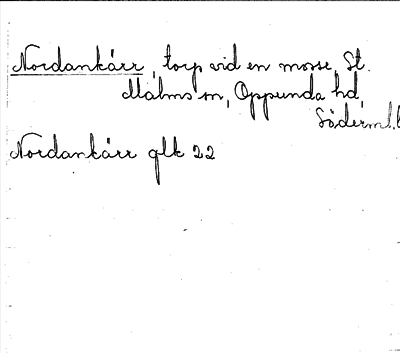 Nordankärr, torp vid en mosse, St.
Malms sn, Oppunda hd,
Söderml.l
Nordankärr glk 22